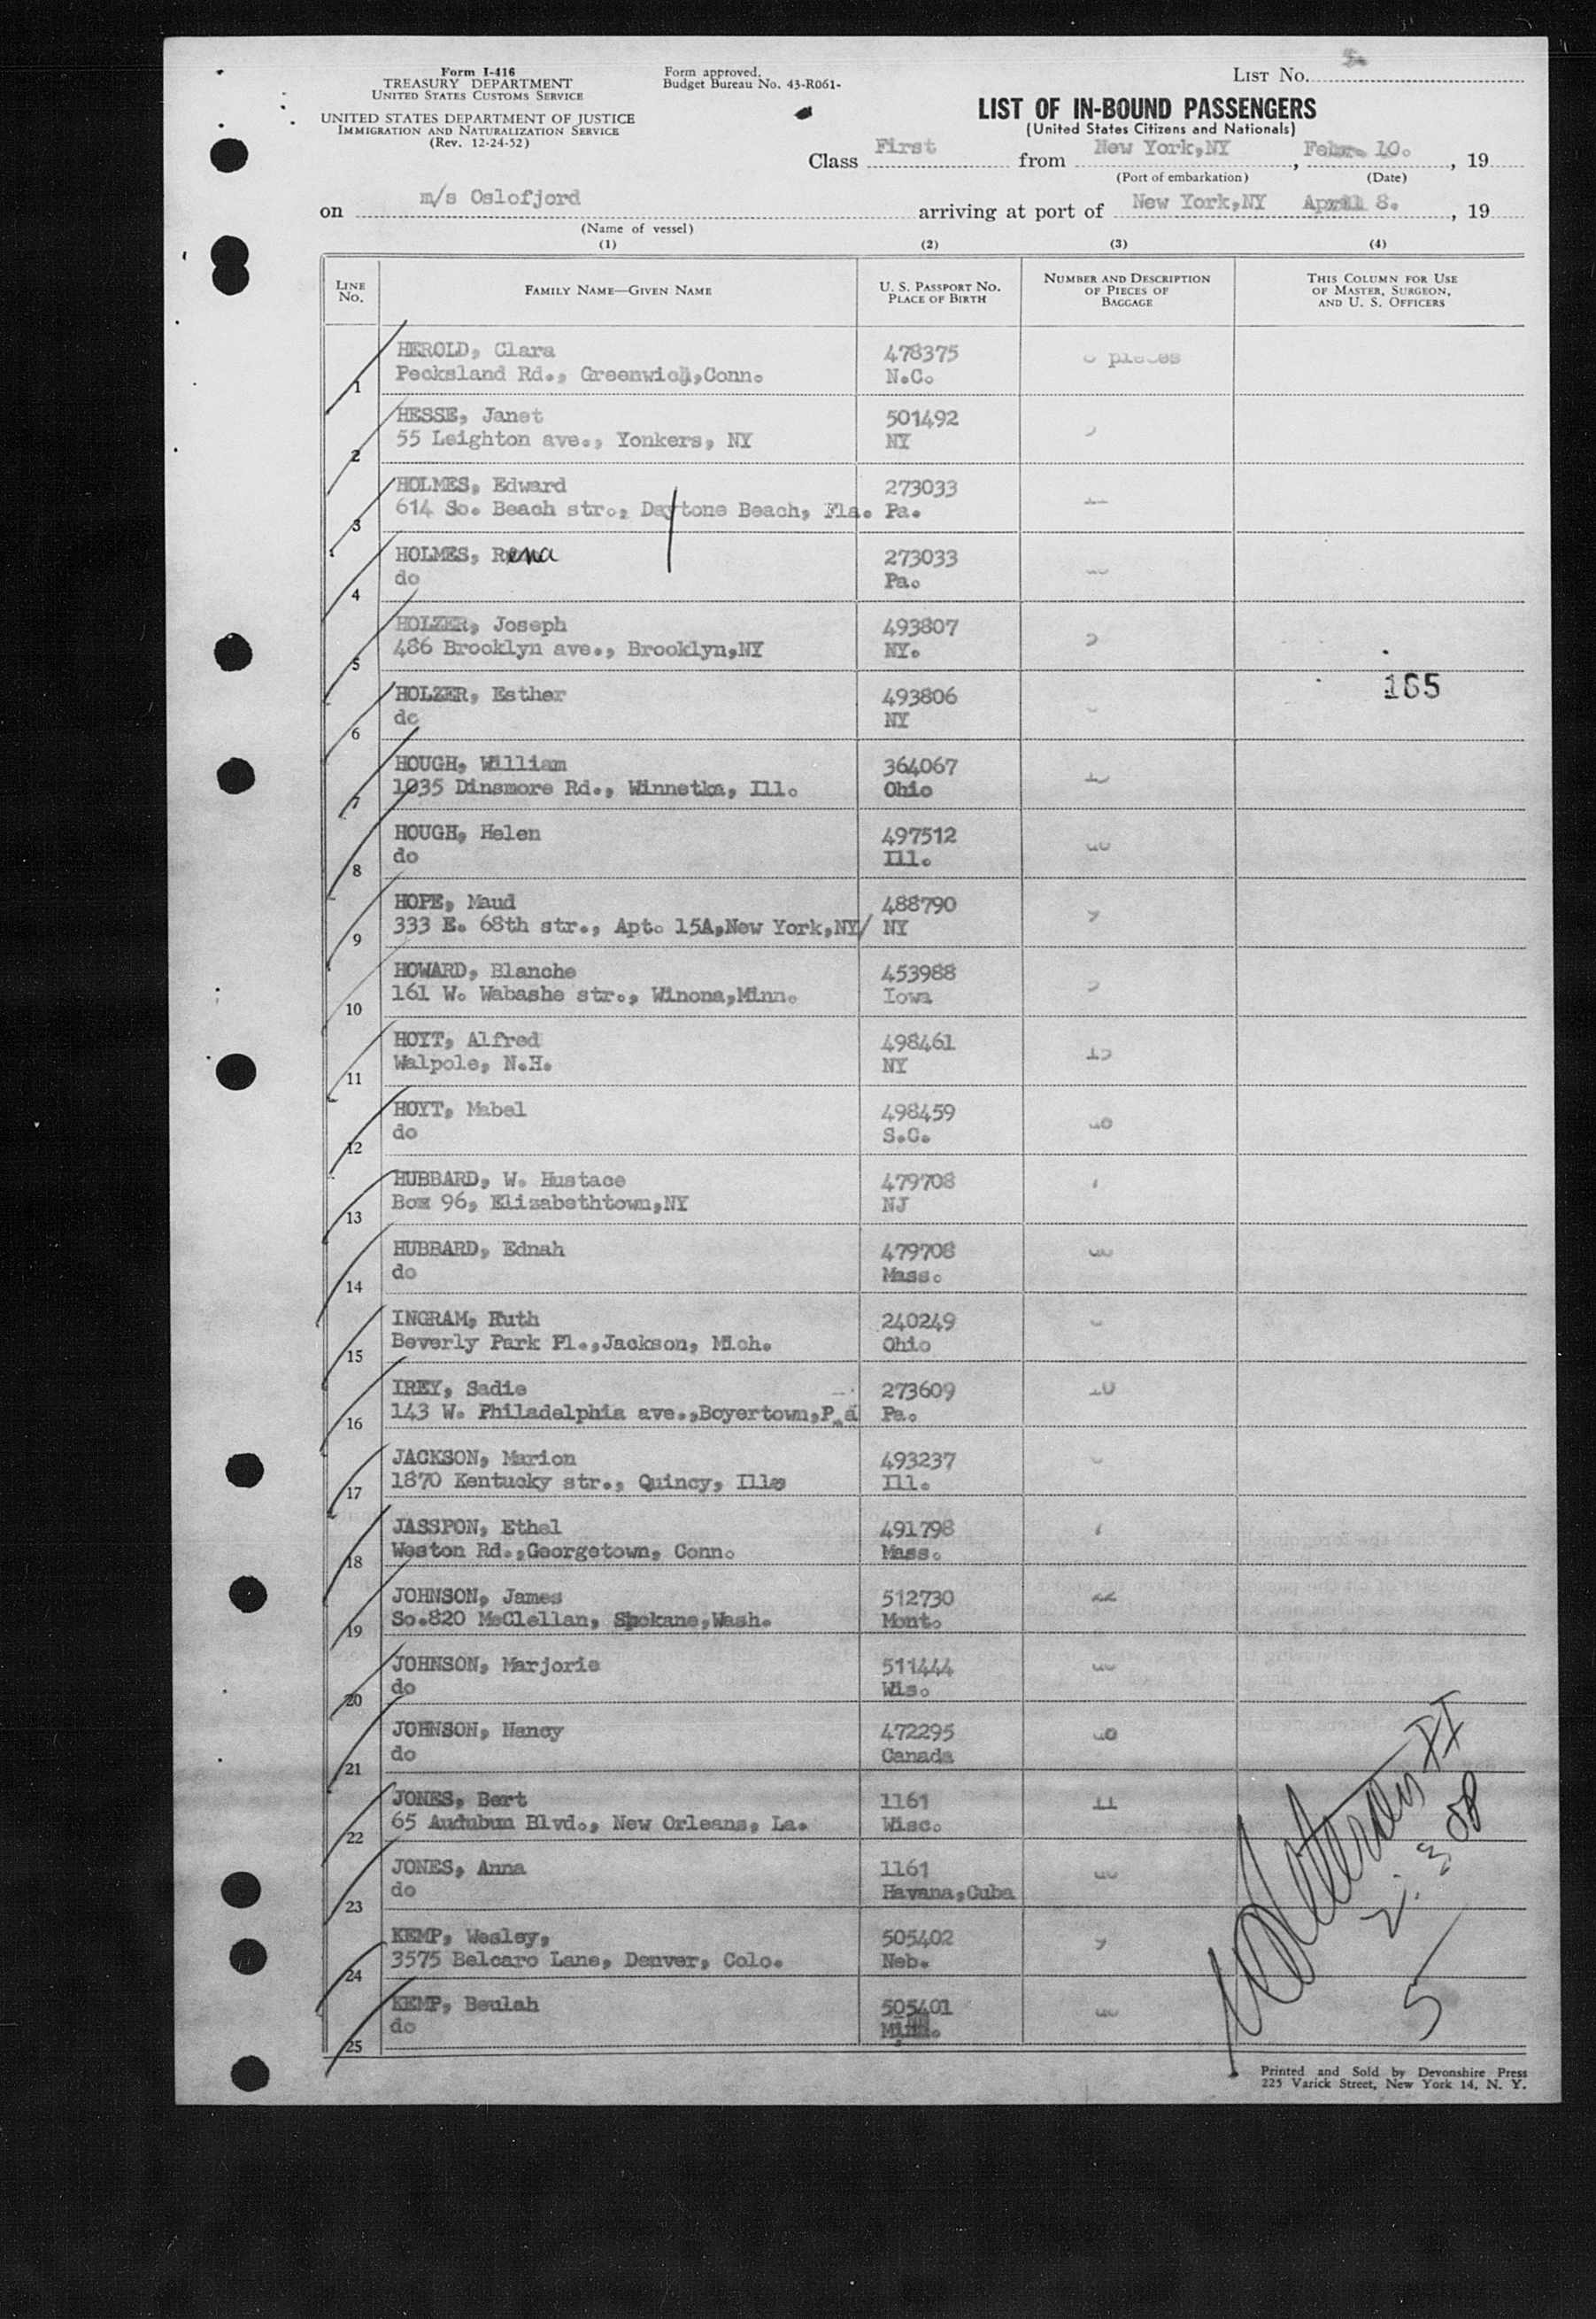 Form I-416
TREASURY DEPARTMENT
UNITED STATES CUSTOMS SERVICE
UNITED STATES DEPARTMENT OF JUSTICE
IMMIGRATION AND NATURALIZATION SERVICE
(Rev. 12-24-52)
Form approved.
Budget Bureau No. 43-R061-
LIST NO.
LIST OF IN-BOUND PASSENGERS
(United States Citizens and Nationals)
Class First from New York,NY, Febr. 10., 19
(Port of embarkation) (Date)
on m/s Oslofjord arriving at port of New York,NY April 8., 19
(Name of vessel)
(1) (2) (3) (4)
LINE NO. FAMILY NAME—GIVEN NAME U. S. PASSPORT NO. PLACE OF BIRTH NUMBER AND DESCRIPTION OF PIECES OF BAGGAGE THIS COLUMN FOR USE OF MASTER, SURGEON, AND U. S. OFFICERS
HEROLD, Clara 478375 pieces
1 Pecksland Rd., Greenwich,Conn. N.C.
HESSE, Janet 501492
2 55 Leighton ave., Yonkers, NY NY
HOLMES, Edward 273033
3 614 So. Beach str., Daytone Beach, Fla. Pa.
HOLMES, Rena 273033
4 do Pa.
HOLZER, Joseph 493807
5 486 Brooklyn ave., Brooklyn,NY NY.
165
HOLZER, Esther 493806
6 do NY
HOUGH, William 364067
7 1035 Dinsmore Rd., Winnetka, Ill. Ohio
HOUGH, Helen 497512 do
8 do Ill.
HOPE, Maud 488790
9 333 E. 68th str., Apt. 15A,New York,NY/ NY
HOWARD, Blanche 453988
10 161 W. Wabashe str., Winona,Minn. Iowa
HOYT, Alfred 498461 15
11 Walpole, N.H. NY
HOYT, Mabel 498459 do
12 do S.C.
HUBBARD, W. Hustace 479708
13 Box 96, Elizabethtown,NY NJ
HUBBARD, Ednah 479708 do
14 do Mass.
INGRAM, Ruth 240249
15 Beverly Park Pl.,Jackson, Mich. Ohio
IREY, Sadie 273609 10
16 143 W. Philadelphia ave.,Boyertown,P.a Pa.
JACKSON, Marion 493237
17 1870 Kentucky str., Quincy, Ill. Ill.
JASSPON, Ethel 491798
18 Weston Rd.,Georgetown, Conn. Mass.
JOHNSON, James 512730
19 So.820 McClellan, Spokane,Wash. Mont.
JOHNSON, Marjorie 511444 do
20 do Wis.
JOHNSON, Nancy 472295 do
21 do Canada
JONES, Bert 1161 11
22 65 Audubun Blvd., New Orleans, La. Wisc.
JONES, Anna 1161 do
23 do Havana,Cuba
KEMP, Wesley, 505402
24 3575 Belcaro Lane, Denver, Colo. Neb.
KEMP, Beulah 505401 do
25 do Minn.
5
Printed and Sold by Devonshire Press
225 Varick Street, New York 14, N. Y.